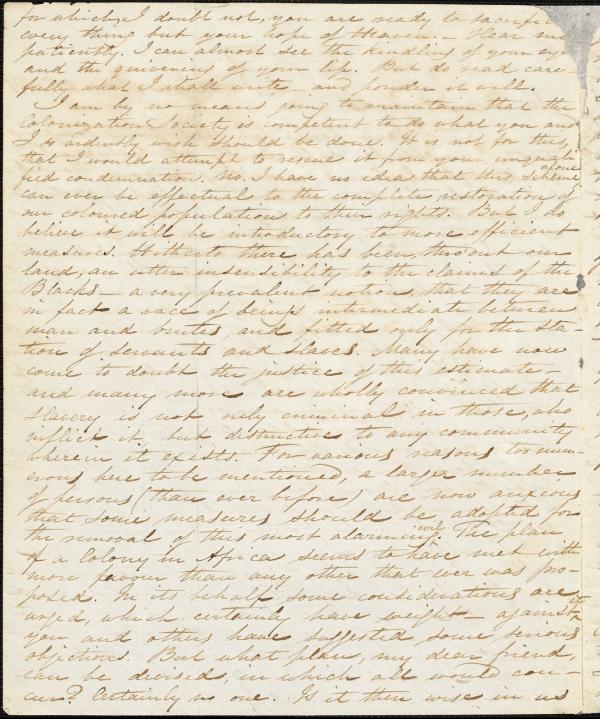 for which, I doubt not, you are ready to sacrifice
every thing but your hope of Heaven. – Hear me
patiently. I can almost see the kindling of your eye
and the quivering of your lip. But do read care-
fully what I shall write – and ponder it well.
I am by no means going to maintain that the
Colonization Society is competent to do what you and
I so ardently wish should be done. It is not for this,
that I would attempt to rescue it from your unquali
fied condemnation. No. I have no idea that this scheme alone
can ever be effectual to the complete restoration of
our coloured population to their rights. But I do
believe it will be introductory to more efficient
measures. Hitherto there has been, thro'out our
land, an utter insensibility to the claims of the
Blacks – a very prevalent notion, that they are
in fact a race of beings intermediate between
man and brutes, and fitted only for the sta-
tion of servants and slaves. Many have now
come to doubt the justice of this estimate –
and many more are wholly convinced that
slavery is not only criminal in those, who
inflict it, but distructive to any community
wherein it exists. For various reasons too num-
erous here to be mentioned, a larger number
of persons (than ever before) are now anxious
that some measures should be adopted for
the removal of this most alarming evil. The plan
of a Colony in Africa seems to have met with
more favour than any other that ever was pro-
posed. In its behalf some considerations are
urged, which certainly have weight – against it
you and others have suggested some serious
objections. But what plan, my dear friend,
can be devised, in which all would con-
cur? Certainly no one. Is it then wise in us